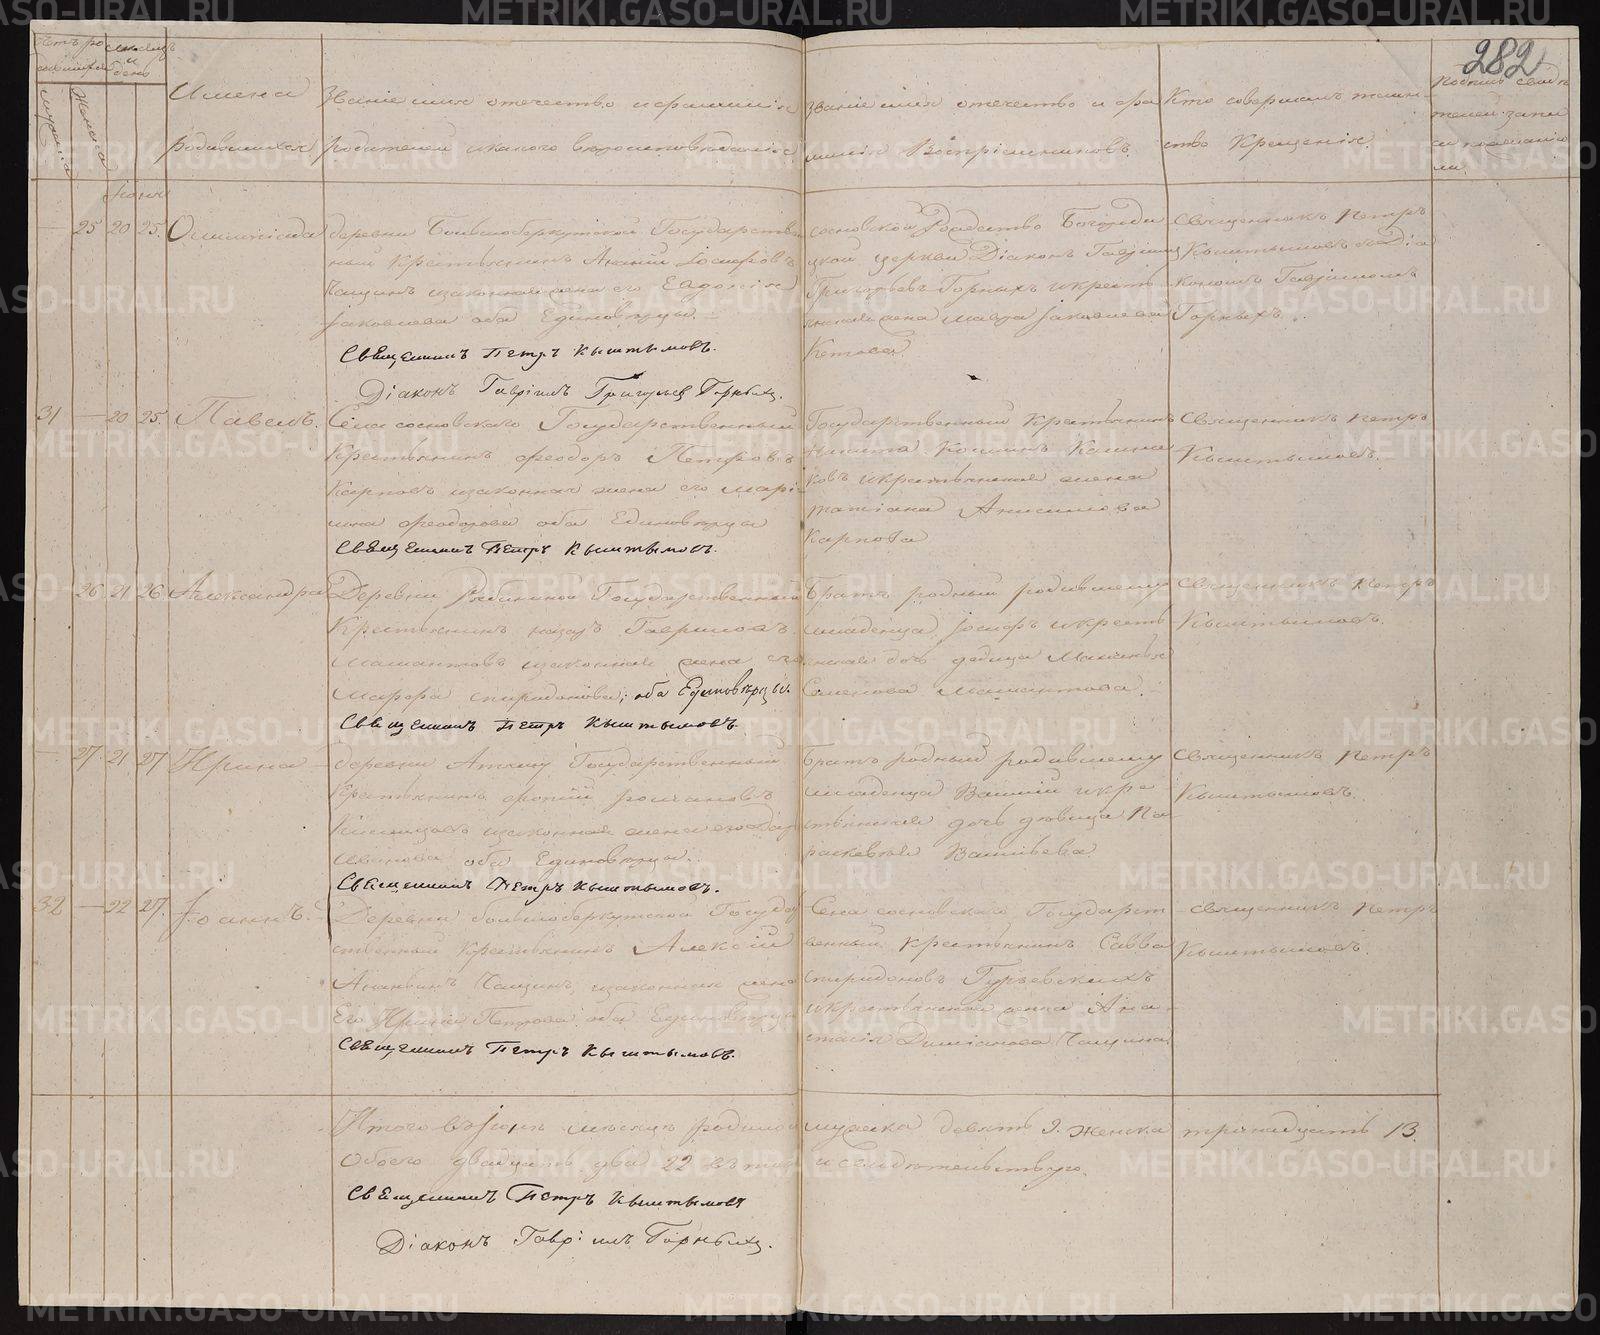 282
Имена
родившихся
Званіе имя отечество и фамилія
родителей и какого вѣроисповѣданія.
Званіе имя отечество и фа
милія Воспріемниковъ.
Кто совершалъ таин
ство Крещенія.
Мужска
Женска
Іюнь
25 20 25. Олимпіада
деревни Большебрекутской Государствен
ный Крестьянинъ
Чащинъ и законная жена его Евдокія
Іаковлева оба Единовѣрцы.
Священникъ Петръ Кыштымовъ.
Діаконъ Гавріилъ Григорьевъ Горныхъ.
сосновской Рождество Богороди
цкой церкви Діаконъ Гавріилъ
Григорьевъ Горныхъ и кресть
янская жена Мавра Іаковлева
Кетова
Священникъ Петръ
Кыштымовъ съ Діа
кономъ Гавріиломъ
Горныхъ.
31 — 20 25. Павелъ.
Села сосновскаго Государственный
Крестьянинъ Феодоръ Петровъ
Карповъ и законная жена его Марі
Феодорова оба Единовѣрцы
Священникъ Петръ Кыштымовъ.
Государственный Крестьянинъ
Никита
ковъ и крестьянская жена
татіана Анисимова
Карпова
Священникъ Петръ
Кыштымовъ.
26 21 26 Александра
Деревни Рябининой Государственный
Крестьянинъ назаръ Гавриловъ
Мамантовъ и законная жена его
Марфа спиридонова; оба Единовѣрцы.
Священникъ Петръ Кыштымовъ
Братъ родный родившему
младенца Іосифъ и кресть
янская дочь девица Маланья
Семенова Мамантова.
Священникъ Петръ
Кыштымовъ.
27 21 27 Ирина
деревни Государственный
Крестьянинъ романовъ
и законная жена его
Иванова оба Единовѣрцы.
Священникъ Петръ Кыштымовъ.
Братъ родный родившему
младенца и кре
стьянская дочь девица Па
раскевія Васильева
Священникъ Петръ
Кыштымовъ.
32 — 22 27. Іоаннъ.
Деревни большебрекутской Государ
ственный Крестьянинъ Алексій
Ананьинъ Чащинъ, и законная жена
Его Ирина Петрова оба Единовѣрцы
Священникъ Петръ Кыштымовъ.
Села сосновскаго Государст
венный крестьянинъ Савва
спиридоновъ Гурьевскихъ
и крестьянская жена Ана
стасія Даміанова Чащина
священникъ Петръ
Кыштымовъ.
Итого въ Іюнѣ мѣсяцѣ родилось мужска девять 9. женска тринадцать 13.
Обоего двадцать два 22 въ томъ и свидѣтельствую.
Священникъ Петръ Кыштымовъ
Діаконъ Гавріилъ Горныхъ.
METRIKI.GASO-URAL.RU